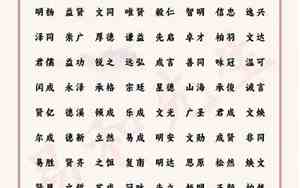 明杨 益贤 文同 唯贤 毅仁 智明 信忠 逸兴
泽同 崇广 厚德 谦益 先启 卓才 柏羽 文达
君儒 益功 锐之 远弘 成言 善同 咏冠 温可
闪成 永泽 承格 宗廷 星德 山海 承俊 诚言
贤亿 德溪 领成 乐成 文光 广圣 君成 文焕
尔成 德新 立然 易成 明安 文勋 成贤 非同
易胜 贤齐 之恒 复南 明达 思原 松然 焕文